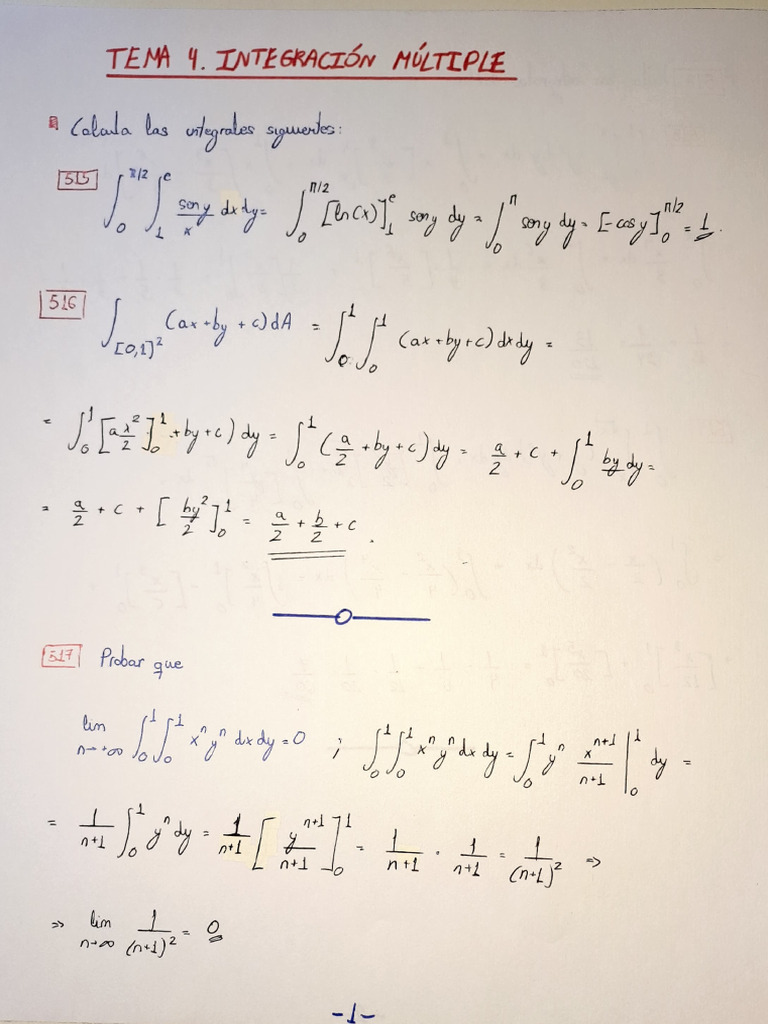 TEMA 4. INTEGRACIÓN MÚLTIPLE
Calcula las integrales siguientes:
515 ∫₀^{π/2} ∫₁^e sen y/x dx dy = ∫₀^{π/2} [ln(x)]₁^e sen y dy = ∫₀^π sen y dy = [-cos y]₀^{π/2} = 1.
516 ∫_{[0,1]²} (ax + by + c) dA = ∫₀¹ ∫₀¹ (ax + by + c) dx dy =
= ∫₀¹ [ax²/2]₀¹ + by + c) dy = ∫₀¹ (a/2 + by + c) dy = a/2 + c + ∫₀¹ by dy =
= a/2 + c + [by²/2]₀¹ = a/2 + b/2 + c.
517 Probar que
lim_{n→+∞} ∫₀¹ ∫₀¹ xⁿ yⁿ dx dy = 0 ; ∫₀¹ ∫₀¹ xⁿ yⁿ dx dy = ∫₀¹ yⁿ x^{n+1}/n+1 |₀¹ dy =
= 1/n+1 ∫₀¹ yⁿ dy = 1/n+1 [y^{n+1}/n+1]₀¹ = 1/n+1 · 1/n+1 = 1/(n+1)² ⇒
⇒ lim_{n→∞} 1/(n+1)² = 0
-1-